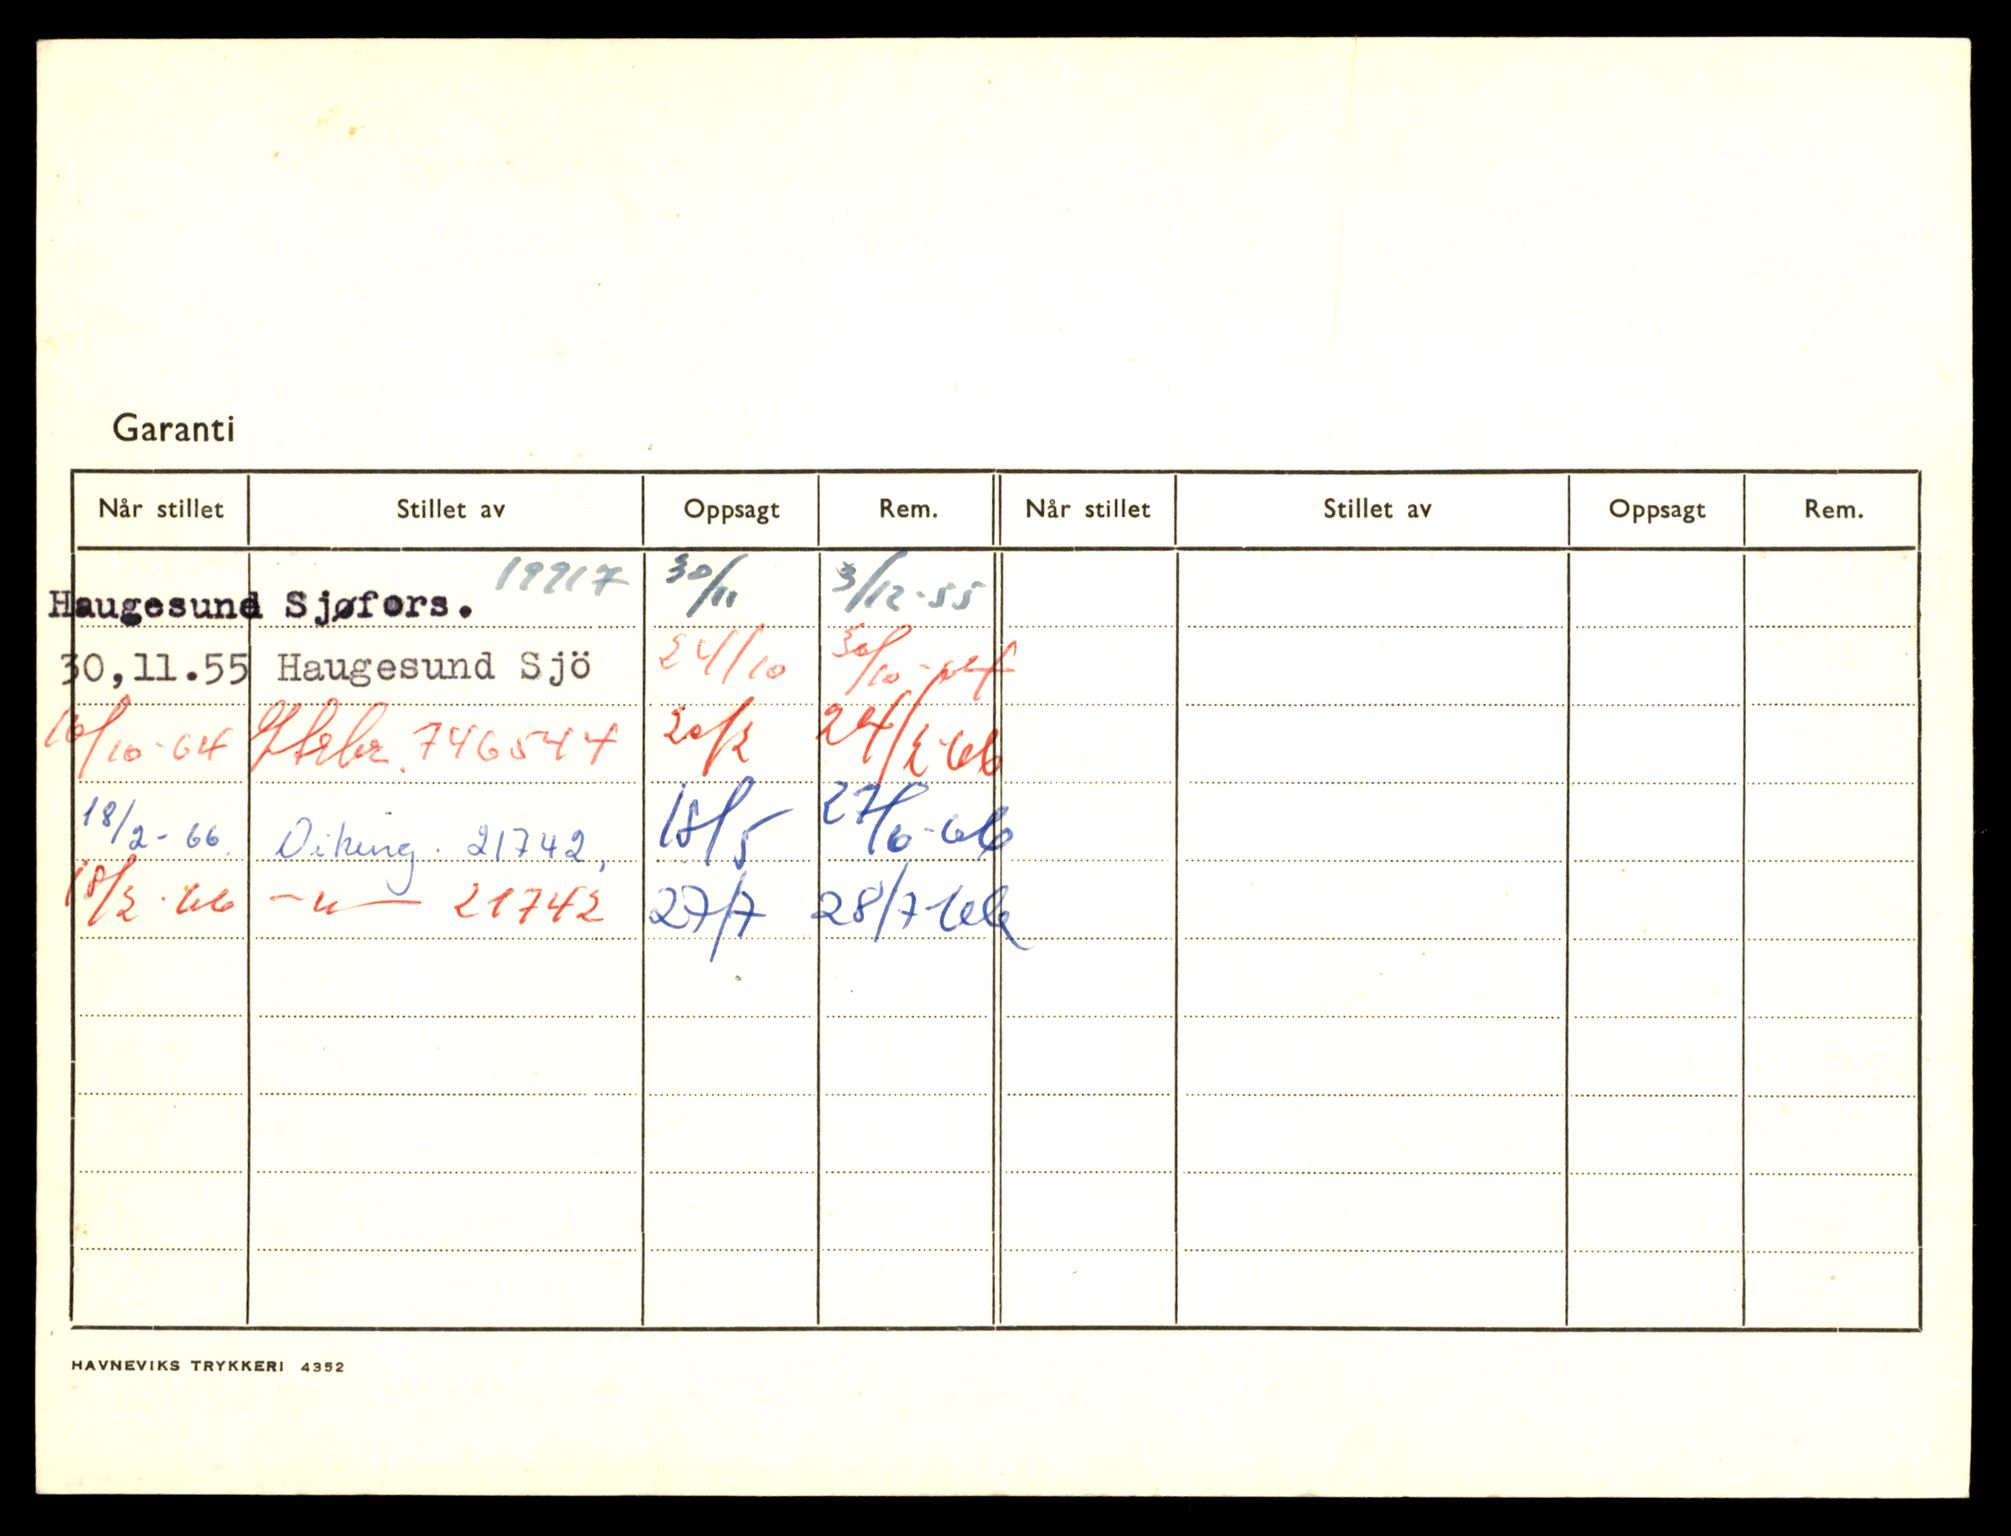 Garanti
Når stillet Stillet av Oppsagt Rem. Når stillet Stillet av Oppsagt Rem.
Haugesund Sjøfors. 19917 30/11 3/12-55
30,11.55 Haugesund Sjö 24/10 30/10-64
16/10-64 746544 20/2 24/2-66
18/2-66. Viking. 21742, 18/5 27/6-66
18/2-66 -"- 21742 27/7 28/7-66
HAVNEVIKS TRYKKERI 4352